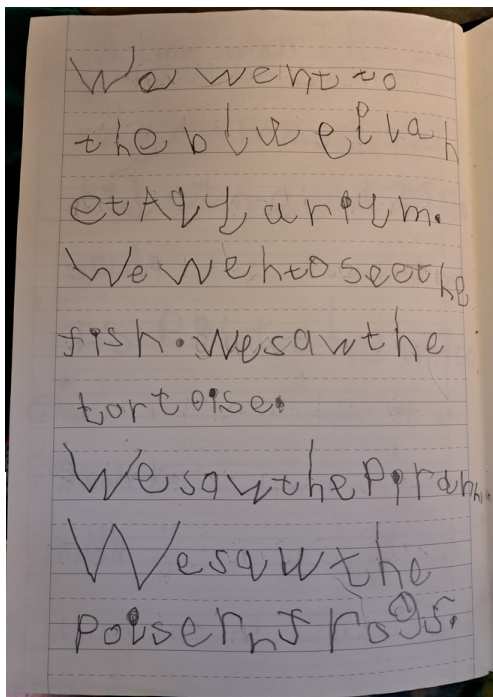 We went to
the blue plan
et Aqyariym.
We wento seethe
fish. Wesawthe
tortoise.
Wesawthepirann.
Wesawthe
poisernfrogs.